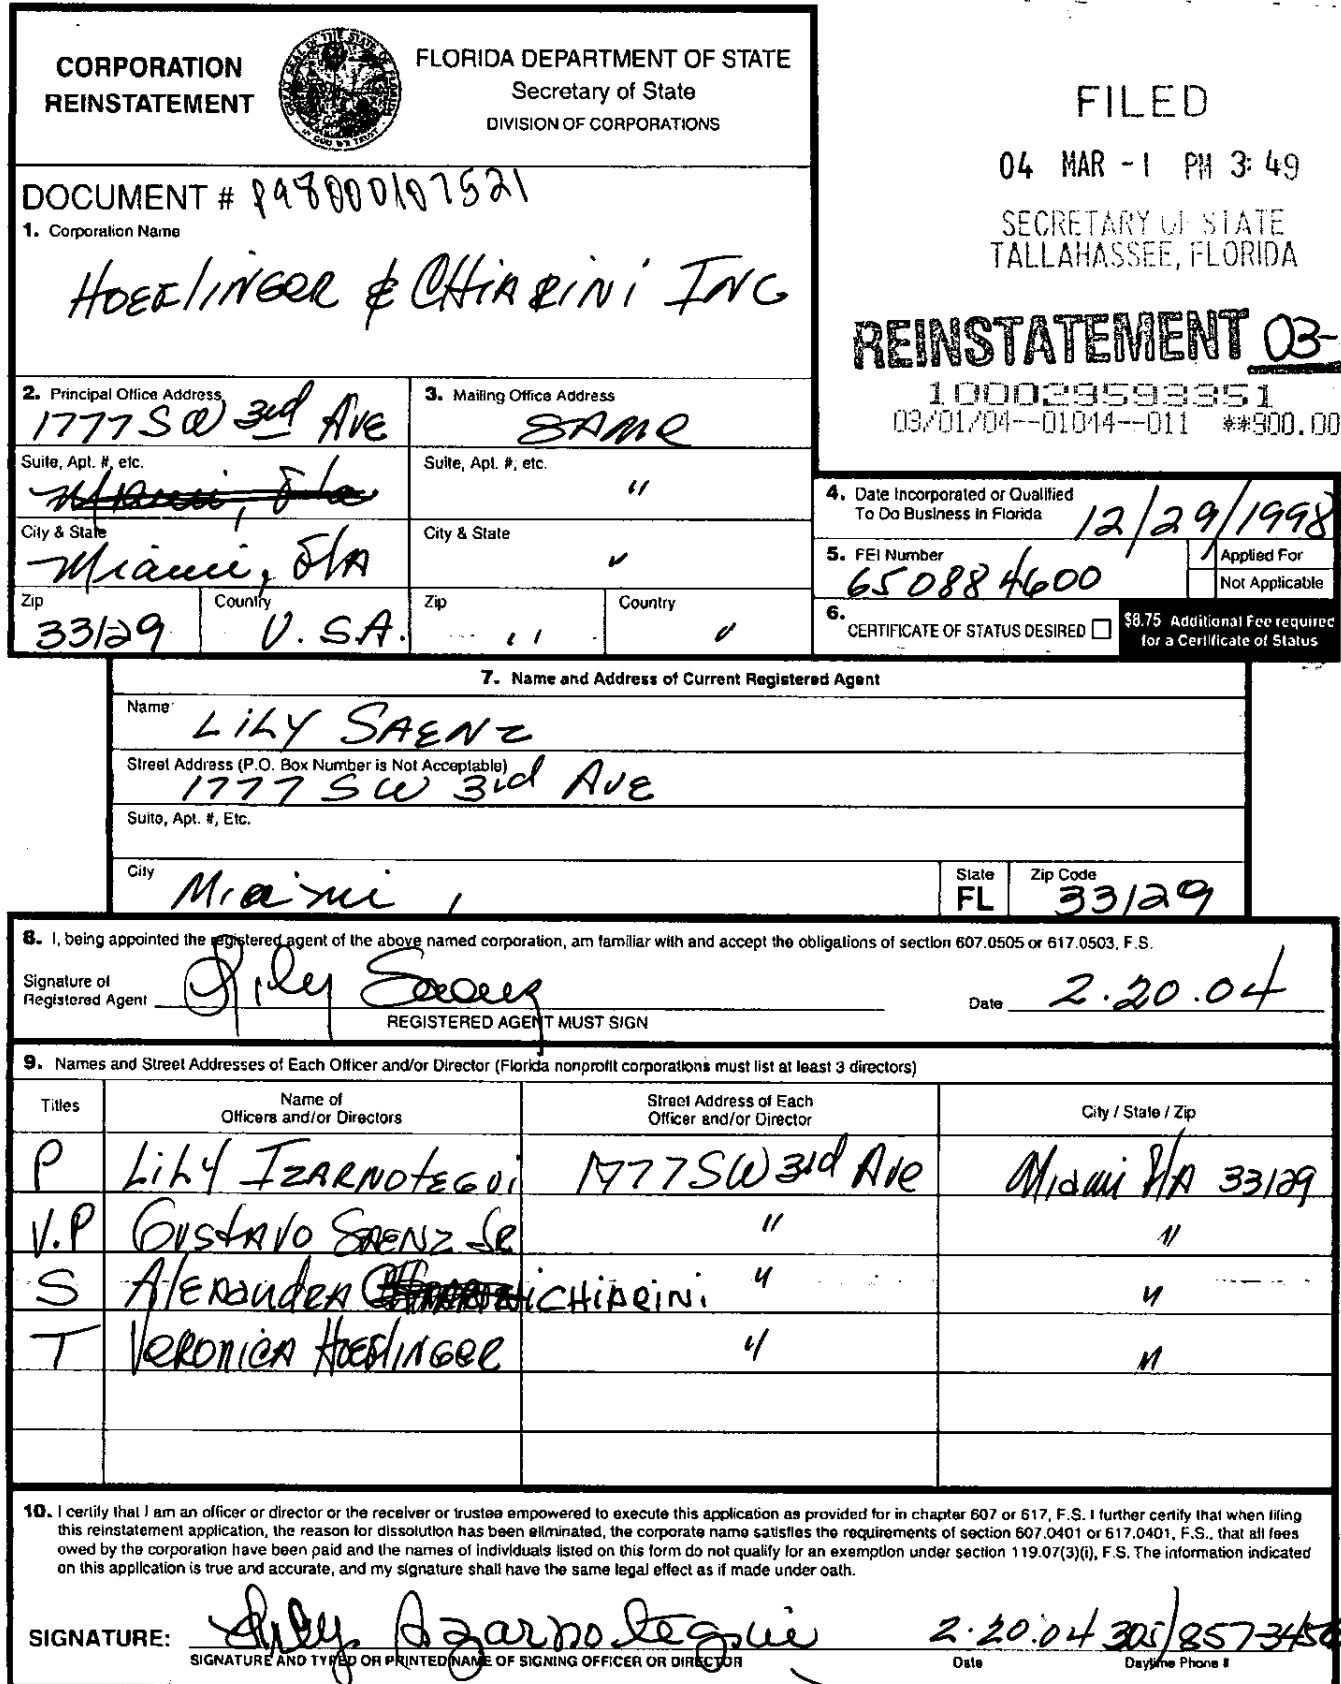 CORPORATION
REINSTATEMENT
FLORIDA DEPARTMENT OF STATE
Secretary of State
DIVISION OF CORPORATIONS
FILED
04 MAR -1 PM 3:49
SECRETARY OF STATE
TALLAHASSEE, FLORIDA
REINSTATEMENT 03-
100029593351
03/01/04--01044--011 **900.00
DOCUMENT # P98000107521
1. Corporation Name
HOERLINGER & CHIARINI INC
2. Principal Office Address
1777 SW 3rd AVE
3. Mailing Office Address
SAME
Suite, Apt. #, etc.
Miami, Fla
Suite, Apt. #, etc.
"
City & State
Miami, FlA
City & State
"
Zip
33129
Country
U.S.A.
Zip
"
Country
"
4. Date Incorporated or Qualified
To Do Business in Florida
12/29/1998
5. FEI Number
650884600
Applied For
Not Applicable
6. CERTIFICATE OF STATUS DESIRED
$8.75 Additional Fee required
for a Certificate of Status
7. Name and Address of Current Registered Agent
Name
LiLY SAENZ
Street Address (P.O. Box Number is Not Acceptable)
1777 SW 3rd AVE
Suite, Apt. #, Etc.
City
Miami,
State
FL
Zip Code
33129
8. I, being appointed the registered agent of the above named corporation, am familiar with and accept the obligations of section 607.0505 or 617.0503, F.S.
Signature of
Registered Agent Lily Saenz
Date 2.20.04
REGISTERED AGENT MUST SIGN
9. Names and Street Addresses of Each Officer and/or Director (Florida nonprofit corporations must list at least 3 directors)
Titles
Name of
Officers and/or Directors
Street Address of Each
Officer and/or Director
City / State / Zip
P LiLY IZARNOTEGUI 1777 SW 3rd Ave Miami FlA 33129
V.P GUSTAVO SAENZ SR " "
S AlExandRA CHIARINI " "
T VERONICA HOERLINGER " "
10. I certify that I am an officer or director or the receiver or trustee empowered to execute this application as provided for in chapter 607 or 617, F.S. I further certify that when filing
this reinstatement application, the reason for dissolution has been eliminated, the corporate name satisfies the requirements of section 607.0401 or 617.0401, F.S., that all fees
owed by the corporation have been paid and the names of individuals listed on this form do not qualify for an exemption under section 119.07(3)(i), F.S. The information indicated
on this application is true and accurate, and my signature shall have the same legal effect as if made under oath.
SIGNATURE: Lily Izarnotegui 2.20.04 305/857 3450
SIGNATURE AND TYPED OR PRINTED NAME OF SIGNING OFFICER OR DIRECTOR
Date
Daytime Phone #